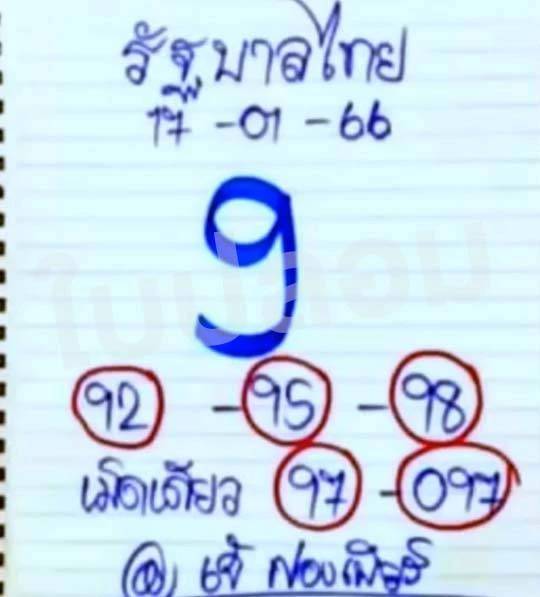 รัฐบาลไทย
17-01-66
9
92 - 95 - 98
เม็ดเดียว 97 - 097
เจ๊ ฟองเบียร์